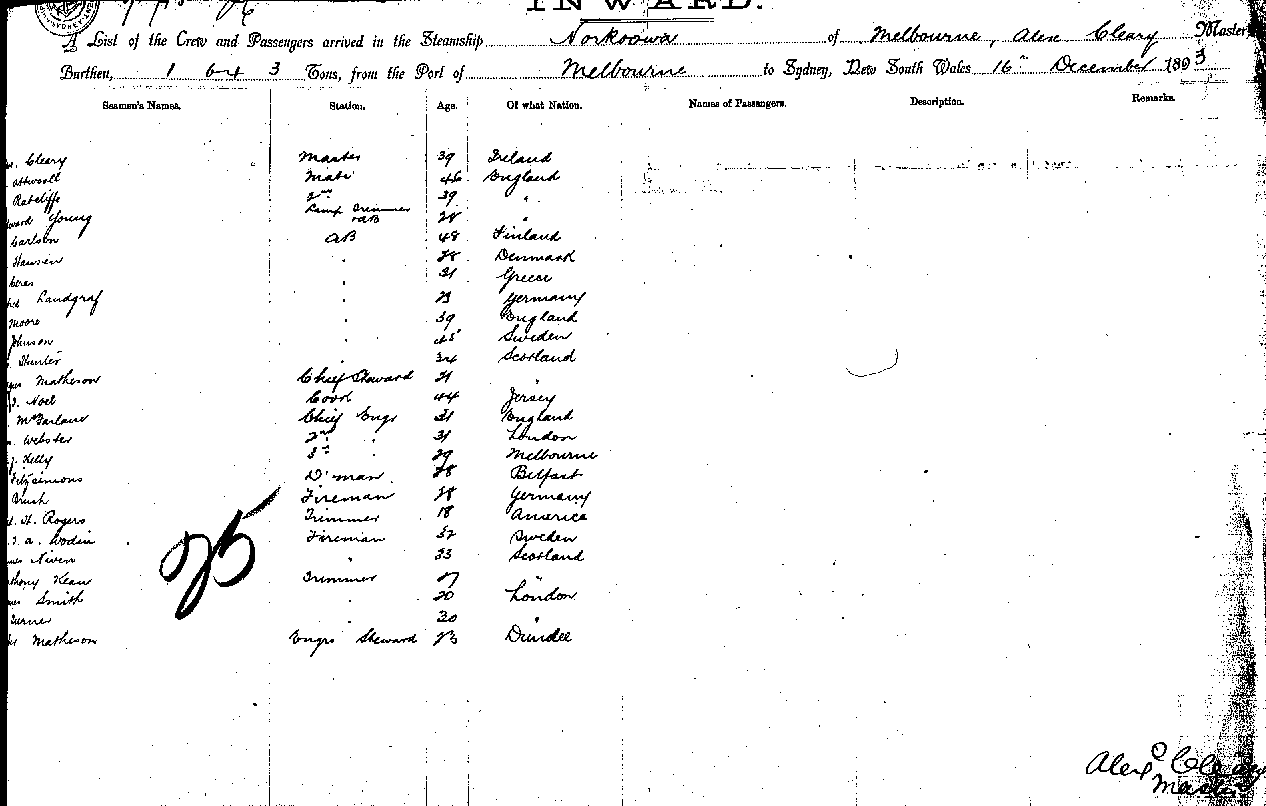 INWARD.
A List of the Crew and Passengers arrived in the Steamship Norkoowa of Melbourne, Alex Cleary Master,
Burthen, 1 64 3 Tons, from the Port of Melbourne to Sydney, New South Wales 16th December 1893
Seamen's Names. Station. Age. Of what Nation. Names of Passengers. Description. Remarks.
Cleary Master 39 Ireland
Attwooll Mate 46 England
Ratcliffe 2nd 39 "
Young Lamp Trimmer & AB 28 "
Carlson AB 48 Finland
Hansen " 28 Denmark
" 31 Greece
Landgraf " 23 Germany
Moore " 39 England
Johnson " 45 Sweden
Hunter " 34 Scotland
Matheson Chief Steward 21 "
J. Noel Cook 44 Jersey
McFarlane Chief Engr 31 England
Webster 2nd " 31 London
Kelly 3rd " 29 Melbourne
Fitzsimons D'man 28 Belfast
Fireman 28 Germany
H. Rogers Trimmer 18 America
A. Wodin Fireman 32 Sweden
Niven " 33 Scotland
Kean Trimmer 27 "
Smith " 20 London
Turner 20 "
Matheson Engrs Steward 23 Dundee
25
Alex Cleary
Master